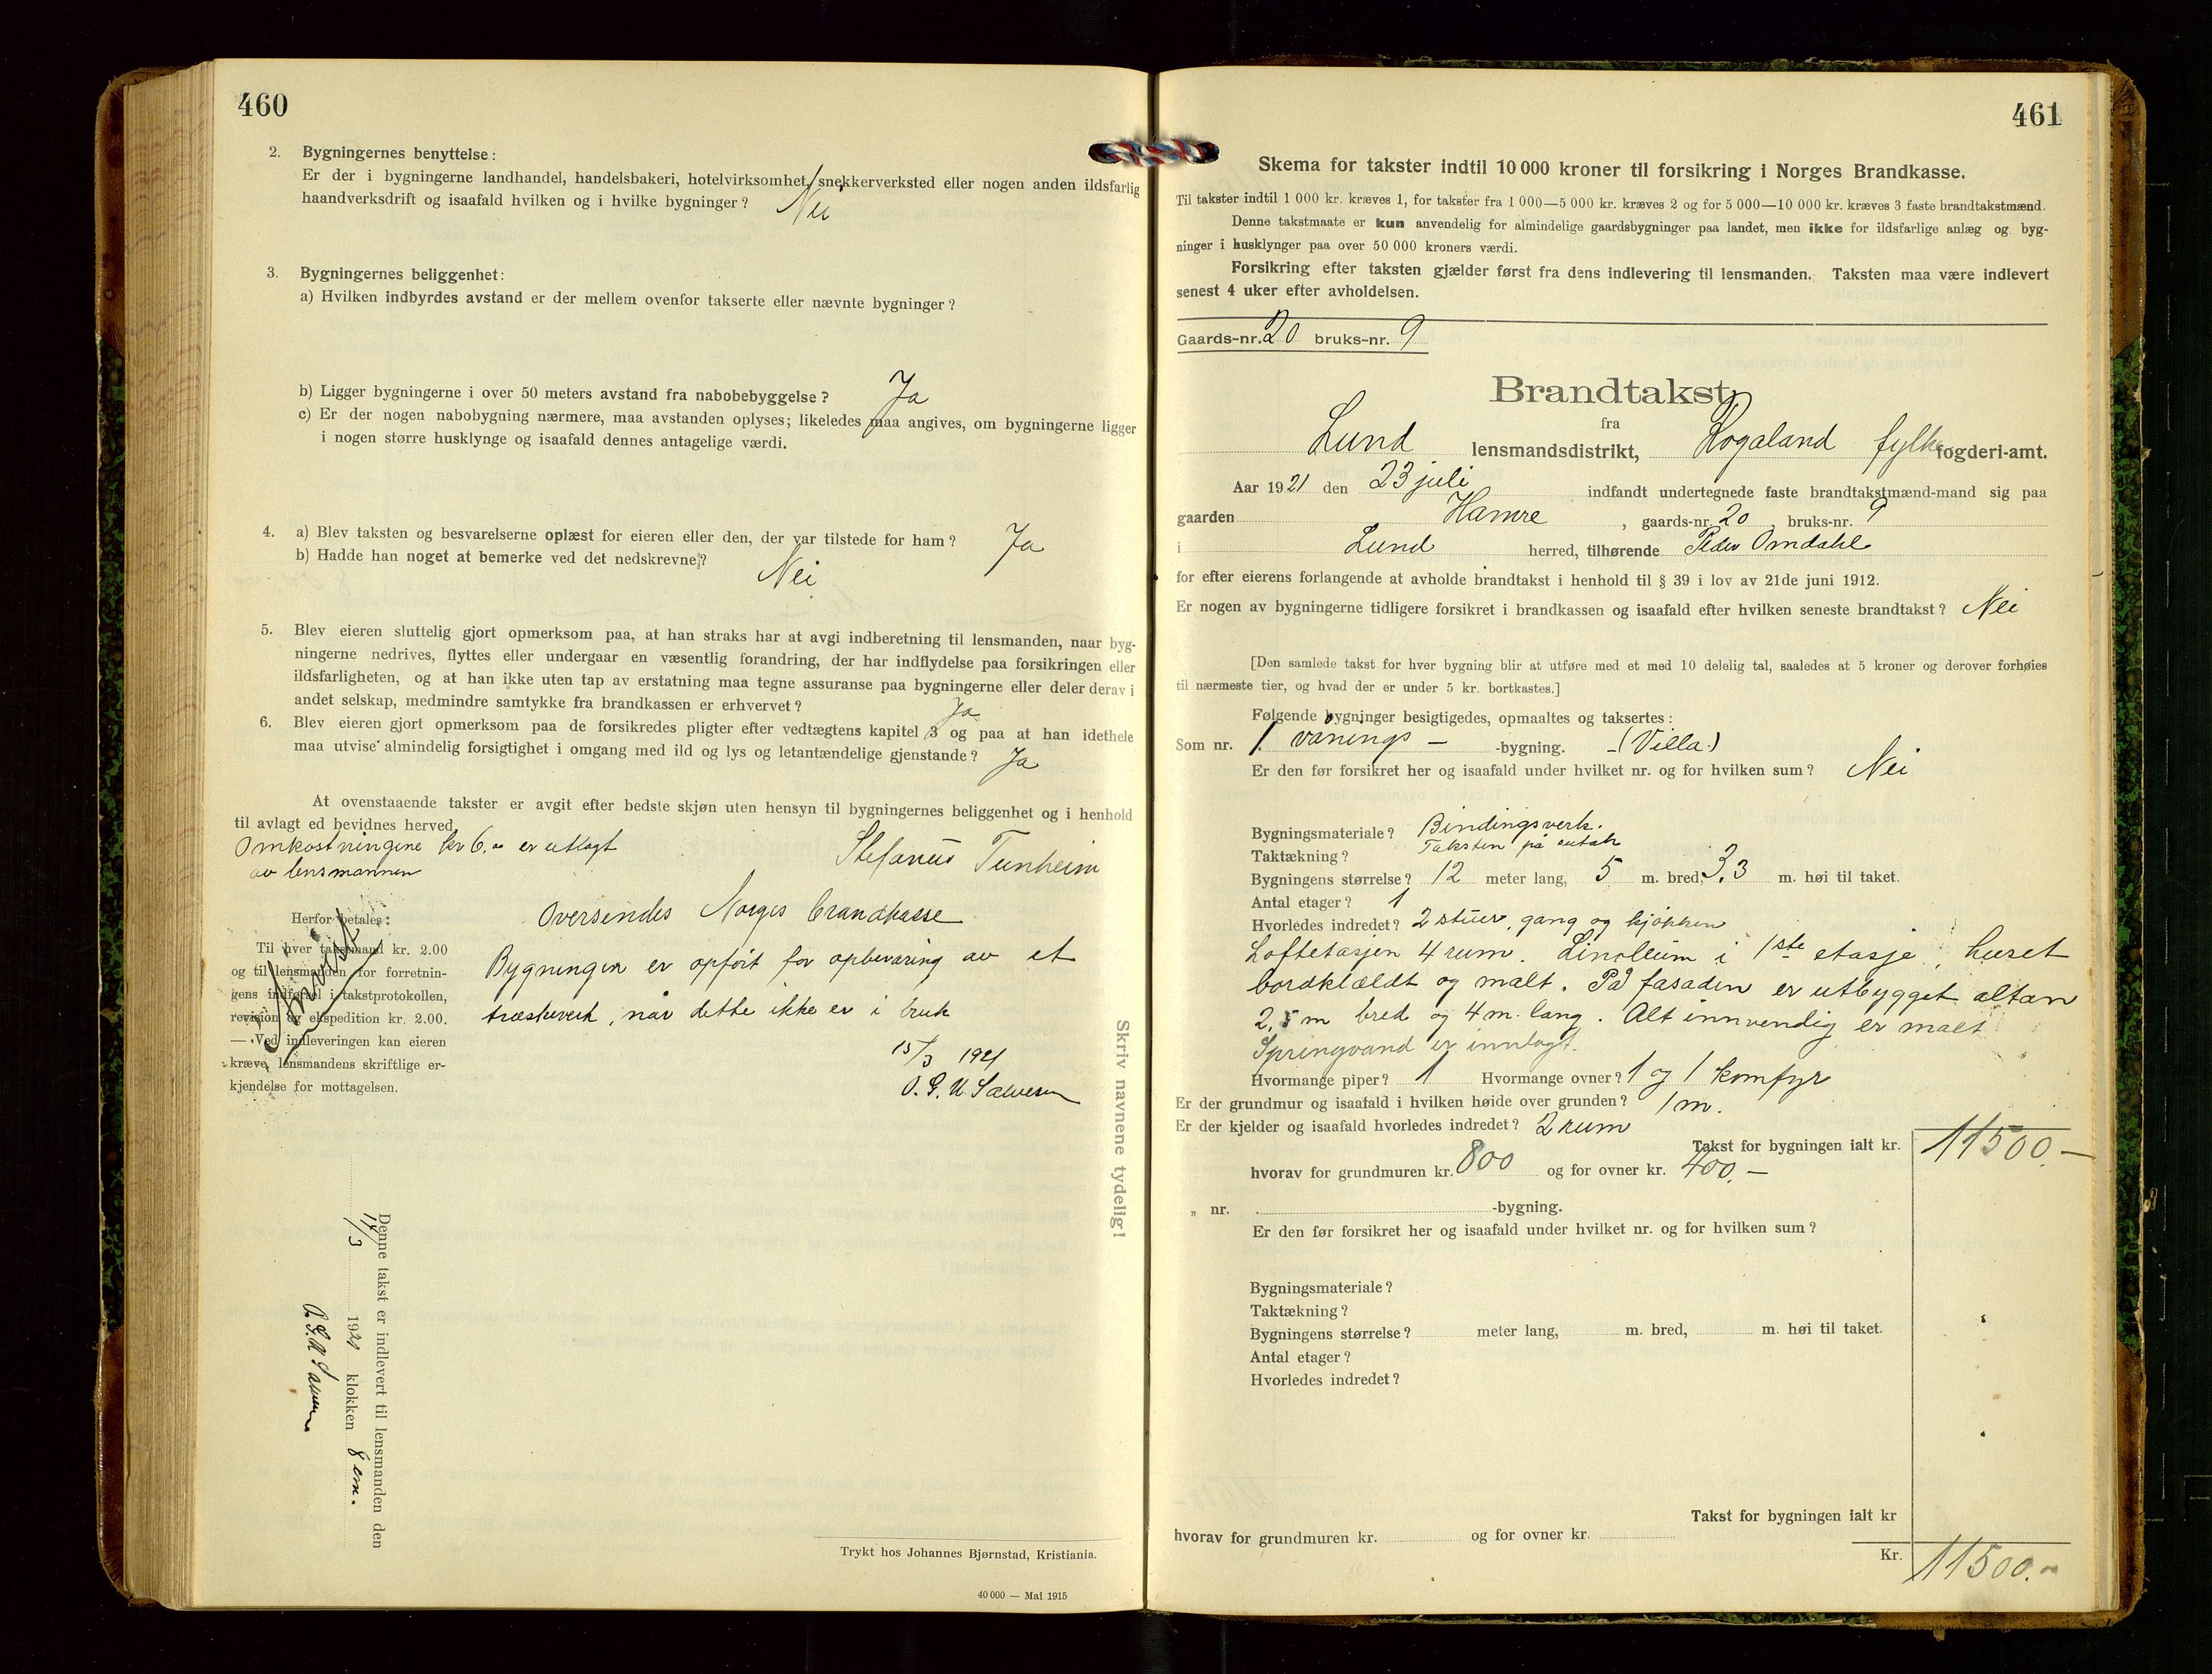 460
2. Bygningernes benyttelse:
Er der i bygningerne landhandel, handelsbakeri, hotelvirksomhet, snekkerverksted eller nogen anden ildsfarlig
haandverksdrift og isaafald hvilken og i hvilke bygninger? Nei
3. Bygningernes beliggenhet:
a) Hvilken indbyrdes avstand er der mellem ovenfor takserte eller nævnte bygninger?
b) Ligger bygningerne i over 50 meters avstand fra nabobebyggelse? Ja
c) Er der nogen nabobygning nærmere, maa avstanden oplyses; likeledes maa angives, om bygningerne ligger
i nogen større husklynge og isaafald dennes antagelige værdi.
4. a) Blev taksten og besvarelserne oplæst for eieren eller den, der var tilstede for ham? Ja
b) Hadde han noget at bemerke ved det nedskrevne? Nei
5. Blev eieren sluttelig gjort opmerksom paa, at han straks har at avgi indberetning til lensmanden, naar byg-
ningerne nedrives, flyttes eller undergaar en væsentlig forandring, der har indflydelse paa forsikringen eller
ildsfarligheten, og at han ikke uten tap av erstatning maa tegne assuranse paa bygningerne eller deler derav i
andet selskap, medmindre samtykke fra brandkassen er erhvervet? Ja
6. Blev eieren gjort opmerksom paa de forsikredes pligter efter vedtægtens kapitel 3 og paa at han idethele
maa utvise almindelig forsigtighet i omgang med ild og lys og letantændelige gjenstande? Ja
At ovenstaaende takster er avgit efter bedste skjøn uten hensyn til bygningernes beliggenhet og i henhold
til avlagt ed bevidnes herved
Omkostningene kr 6.00 er utlagt
av lensmannen
Stefanus Tunheim
Herfor betales:
Til hver takstmand kr. 2.00
og til lensmanden for forretnin-
gens indførsel i takstprotokollen,
revision og ekspedition kr. 2.00.
— Ved indleveringen kan eieren
kræve lensmandens skriftlige er-
kjendelse for mottagelsen.
Oversendes Norges brandkasse
Bygningen er opført for opbevaring av et
træskeverk, når dette ikke er i bruk
15/3 1921
O. G. U. Salvesen
Skriv navnene tydelig!
Denne takst er indlevert til lensmanden den
14/3 1921 klokken 8 em.
Trykt hos Johannes Bjørnstad, Kristiania.
40 000 — Mai 1915
461
Skema for takster indtil 10 000 kroner til forsikring i Norges Brandkasse.
Til takster indtil 1 000 kr. kræves 1, for takster fra 1 000—5 000 kr. kræves 2 og for 5 000—10 000 kr. kræves 3 faste brandtakstmænd.
Denne takstmaate er kun anvendelig for almindelige gaardsbygninger paa landet, men ikke for ildsfarlige anlæg og byg-
ninger i husklynger paa over 50 000 kroners værdi.
Forsikring efter taksten gjælder først fra dens indlevering til lensmanden. Taksten maa være indlevert
senest 4 uker efter avholdelsen.
Gaards-nr. 20 bruks-nr. 9
Brandtakst
fra
Lund lensmandsdistrikt, Rogaland fylke fogderi-amt.
Aar 1921 den 23 juli indfandt undertegnede faste brandtakstmænd-mand sig paa
gaarden Hamre, gaards-nr. 20, bruks-nr. 9
i Lund herred, tilhørende Peder Omdahl
for efter eierens forlangende at avholde brandtakst i henhold til § 39 i lov av 21de juni 1912.
Er nogen av bygningerne tidligere forsikret i brandkassen og isaafald efter hvilken seneste brandtakst? Nei
[Den samlede takst for hver bygning blir at utføre med et med 10 delelig tal, saaledes at 5 kroner og derover forhøies
til nærmeste tier, og hvad der er under 5 kr. bortkastes.]
Følgende bygninger besigtigedes, opmaaltes og taksertes:
Som nr. 1. vånings- -bygning. -(Villa.)
Er den før forsikret her og isaafald under hvilket nr. og for hvilken sum? Nei
Bygningsmateriale? Bindingsverk.
Taktækning? Taksten på
Bygningens størrelse? 12 meter lang, 5 m. bred, 3.3 m. høi til taket.
Antal etager? 1
Hvorledes indredet? 2 stuer, gang og kjøkken
Loftetasjen 4 rum. Linolleum i 1ste etasje, huset
bordklældt og malt. På fasaden er utbygget altan
2,5 m bred og 4 m. lang. Alt innvendig er malt
Springvand er innlagt.
Hvormange piper? 1 Hvormange ovner? 1 og 1 komfyr
Er der grundmur og isaafald i hvilken høide over grunden? 1 m.
Er der kjelder og isaafald hvorledes indredet? 2 rum
Takst for bygningen ialt kr. 11500.—
hvorav for grundmuren kr. 800 og for ovner kr. 400.—
„ nr. -bygning.
Er den før forsikret her og isaafald under hvilket nr. og for hvilken sum?
Bygningsmateriale?
Taktækning?
Bygningens størrelse? meter lang, m. bred, m. høi til taket.
Antal etager?
Hvorledes indredet?
Takst for bygningen ialt kr
hvorav for grundmuren kr. og for ovner kr.
Kr. 11500.00